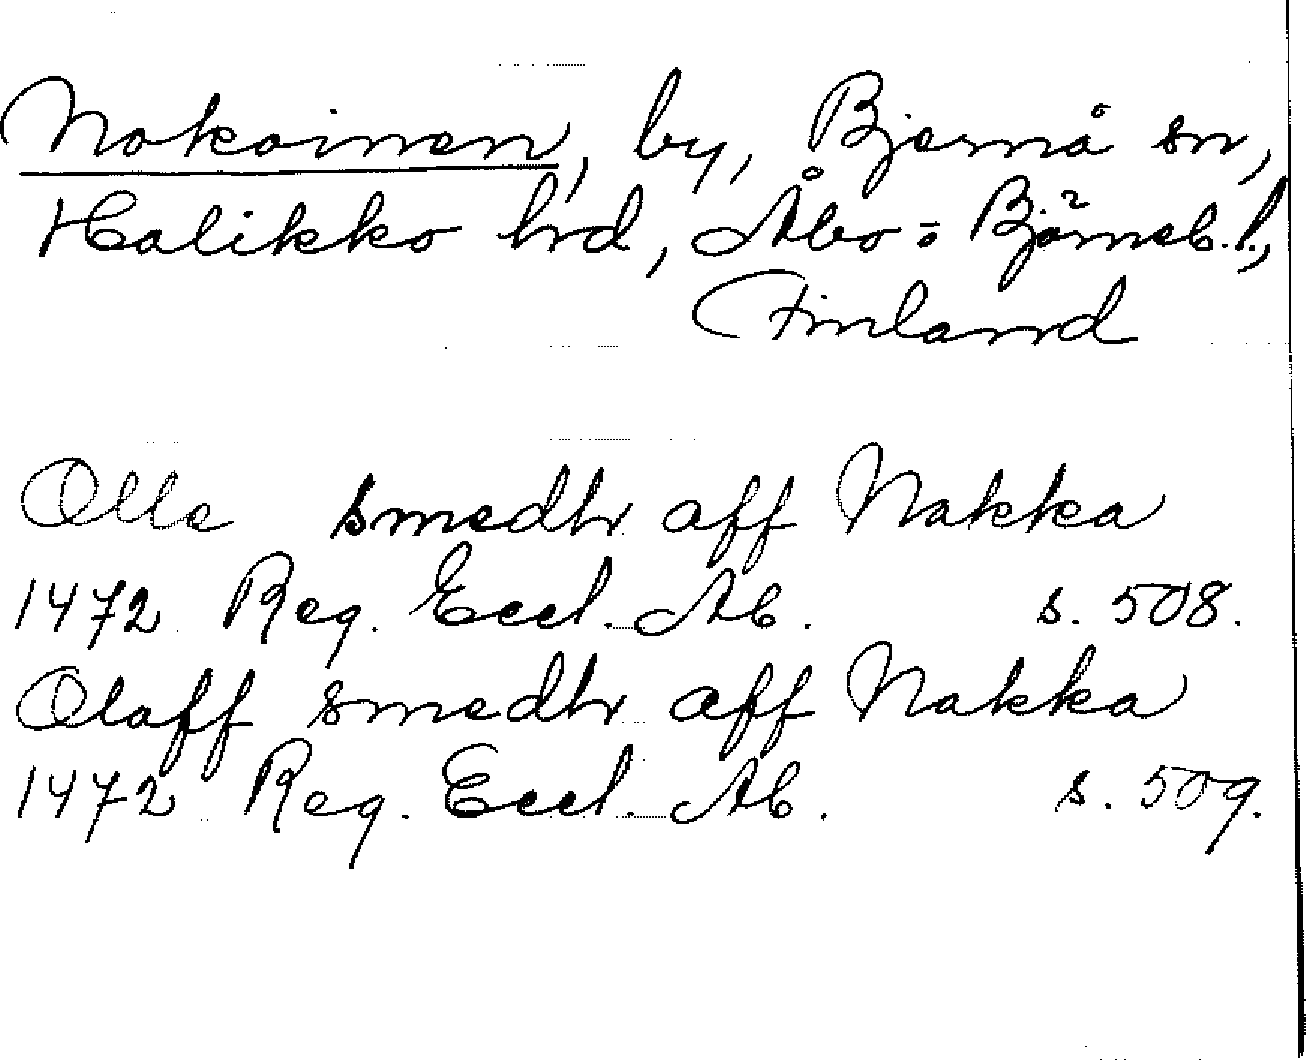 Nokoinen, by, Bjernå sn,
Halikko hrd, Åbo = Björneb. l.,
Finland
Olle smedhr aff Nakka
1472 Reg. Eccl. Ab. s. 508.
Olaff smedhr aff Nakka
1472 Reg. Eccl. Ab. s. 509.